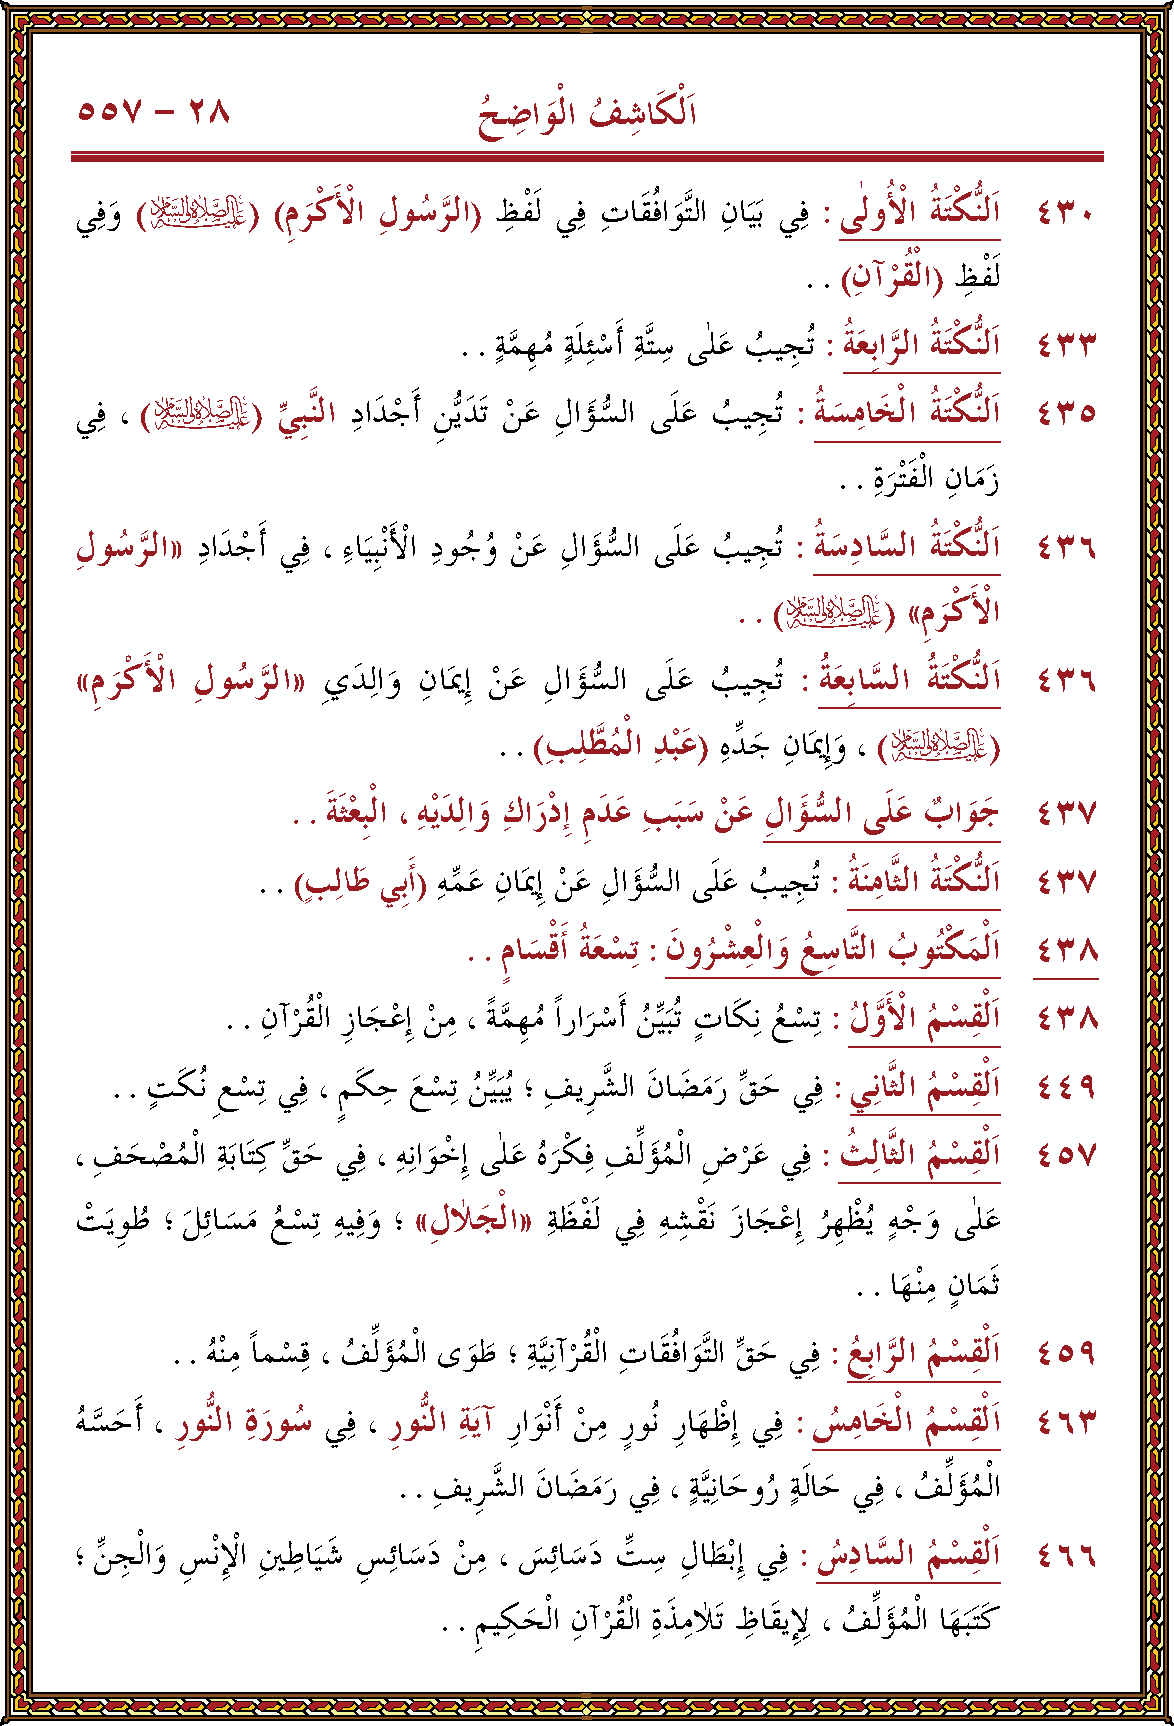 اَلْكَاشِفُ الْوَاضِحُ ٢٨ – ٥٥٧
٤٣٠ اَلنُّكْتَةُ الْأُولٰى : فِي بَيَانِ التَّوَافُقَاتِ فِي لَفْظِ (الرَّسُولِ الْأَكْرَمِ) (عَلَيْهِ الصَّلَاةُ وَالسَّلَامُ) وَفِي
لَفْظِ (الْقُرْآنِ) . .
٤٣٣ اَلنُّكْتَةُ الرَّابِعَةُ : تُجِيبُ عَلٰى سِتَّةِ أَسْئِلَةٍ مُهِمَّةٍ . .
٤٣٥ اَلنُّكْتَةُ الْخَامِسَةُ : تُجِيبُ عَلَى السُّؤَالِ عَنْ تَدَيُّنِ أَجْدَادِ النَّبِيِّ (عَلَيْهِ الصَّلَاةُ وَالسَّلَامُ) ، فِي
زَمَانِ الْفَتْرَةِ . .
٤٣٦ اَلنُّكْتَةُ السَّادِسَةُ : تُجِيبُ عَلَى السُّؤَالِ عَنْ وُجُودِ الْأَنْبِيَاءِ ، فِي أَجْدَادِ «الرَّسُولِ
الْأَكْرَمِ» (عَلَيْهِ الصَّلَاةُ وَالسَّلَامُ) . .
٤٣٦ اَلنُّكْتَةُ السَّابِعَةُ : تُجِيبُ عَلَى السُّؤَالِ عَنْ إِيمَانِ وَالِدَيِ «الرَّسُولِ الْأَكْرَمِ»
(عَلَيْهِ الصَّلَاةُ وَالسَّلَامُ) ، وَإِيمَانِ جَدِّهِ (عَبْدِ الْمُطَّلِبِ) . .
٤٣٧ جَوَابٌ عَلَى السُّؤَالِ عَنْ سَبَبِ عَدَمِ إِدْرَاكِ وَالِدَيْهِ ، الْبِعْثَةَ . .
٤٣٧ اَلنُّكْتَةُ الثَّامِنَةُ : تُجِيبُ عَلَى السُّؤَالِ عَنْ إِيمَانِ عَمِّهِ (أَبِي طَالِبٍ) . .
٤٣٨ اَلْمَكْتُوبُ التَّاسِعُ وَالْعِشْرُونَ : تِسْعَةُ أَقْسَامٍ . .
٤٣٨ اَلْقِسْمُ الْأَوَّلُ : تِسْعُ نِكَاتٍ تُبَيِّنُ أَسْرَاراً مُهِمَّةً ، مِنْ إِعْجَازِ الْقُرْآنِ . .
٤٤٩ اَلْقِسْمُ الثَّانِي : فِي حَقِّ رَمَضَانَ الشَّرِيفِ ؛ يُبَيِّنُ تِسْعَ حِكَمٍ ، فِي تِسْعِ نُكَتٍ . .
٤٥٧ اَلْقِسْمُ الثَّالِثُ : فِي عَرْضِ الْمُؤَلِّفِ فِكْرَهُ عَلٰى إِخْوَانِهِ ، فِي حَقِّ كِتَابَةِ الْمُصْحَفِ ،
عَلٰى وَجْهٍ يُظْهِرُ إِعْجَازَ نَقْشِهِ فِي لَفْظَةِ «الْجَلَالِ» ؛ وَفِيهِ تِسْعُ مَسَائِلَ ؛ طُوِيَتْ
ثَمَانٍ مِنْهَا . .
٤٥٩ اَلْقِسْمُ الرَّابِعُ : فِي حَقِّ التَّوَافُقَاتِ الْقُرْآنِيَّةِ ؛ طَوَى الْمُؤَلِّفُ ، قِسْماً مِنْهُ . .
٤٦٣ اَلْقِسْمُ الْخَامِسُ : فِي إِظْهَارِ نُورٍ مِنْ أَنْوَارِ آيَةِ النُّورِ ، فِي سُورَةِ النُّورِ ، أَحَسَّهُ
الْمُؤَلِّفُ ، فِي حَالَةٍ رُوحَانِيَّةٍ ، فِي رَمَضَانَ الشَّرِيفِ . .
٤٦٦ اَلْقِسْمُ السَّادِسُ : فِي إِبْطَالِ سِتِّ دَسَائِسَ ، مِنْ دَسَائِسِ شَيَاطِينِ الْإِنْسِ وَالْجِنِّ ؛
كَتَبَهَا الْمُؤَلِّفُ ، لِإِيقَاظِ تَلَامِذَةِ الْقُرْآنِ الْحَكِيمِ . .